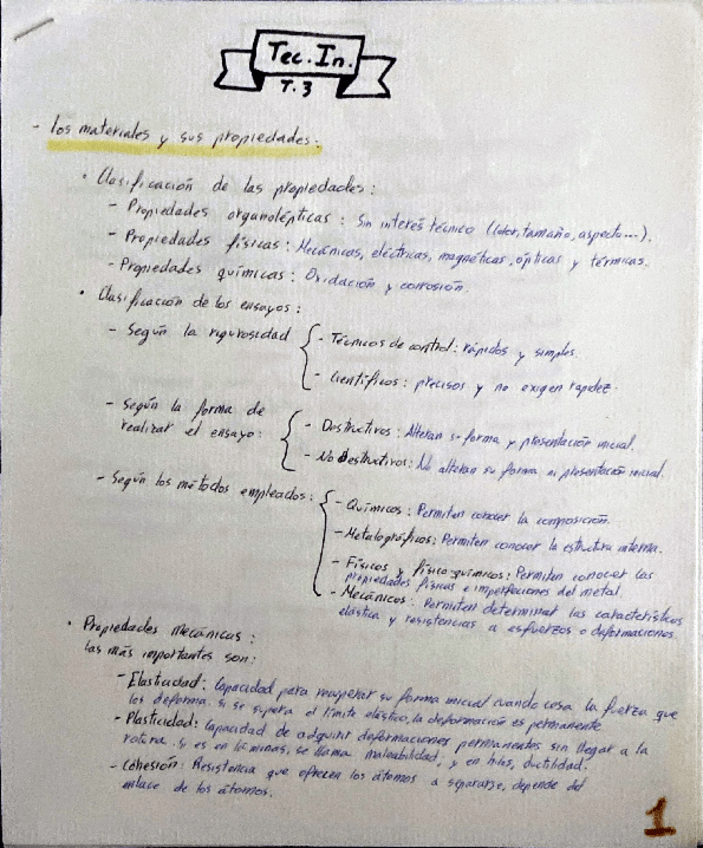 Tec. In.
T. 3
- Los materiales y sus propiedades:
• Clasificación de las propiedades:
- Propiedades organolépticas: Sin interés técnico (Color, tamaño, aspecto...).
- Propiedades físicas: Mecánicas, eléctricas, magnéticas, ópticas y térmicas.
- Propiedades químicas: Oxidación y corrosión.
• Clasificación de los ensayos:
- Según la rigurosidad
- Técnicos de control: rápidos y simples.
- Científicos: precisos y no exigen rapidez.
- Según la forma de
realizar el ensayo:
- Destructivos: Alteran su forma y presentación inicial.
- No Destructivos: No alteran su forma ni presentación inicial.
- Según los métodos empleados:
- Químicos: Permiten conocer la composición.
- Metalográficos: Permiten conocer la estructura interna.
- Físicos y físico-químicos: Permiten conocer las
propiedades físicas e imperfecciones del metal.
- Mecánicos: Permiten determinar las características
elástica y resistencias a esfuerzos o deformaciones.
• Propiedades mecánicas:
las más importantes son:
- Elasticidad: Capacidad para recuperar su forma inicial cuando cesa la fuerza que
los deforma. Si se supera el límite elástico, la deformación es permanente.
- Plasticidad: Capacidad de adquirir deformaciones permanentes sin llegar a la
rotura. Si es en láminas, se llama maleabilidad, y en hilos, ductilidad.
- Cohesión: Resistencia que ofrecen los átomos a separarse, depende del
enlace de los átomos.
1